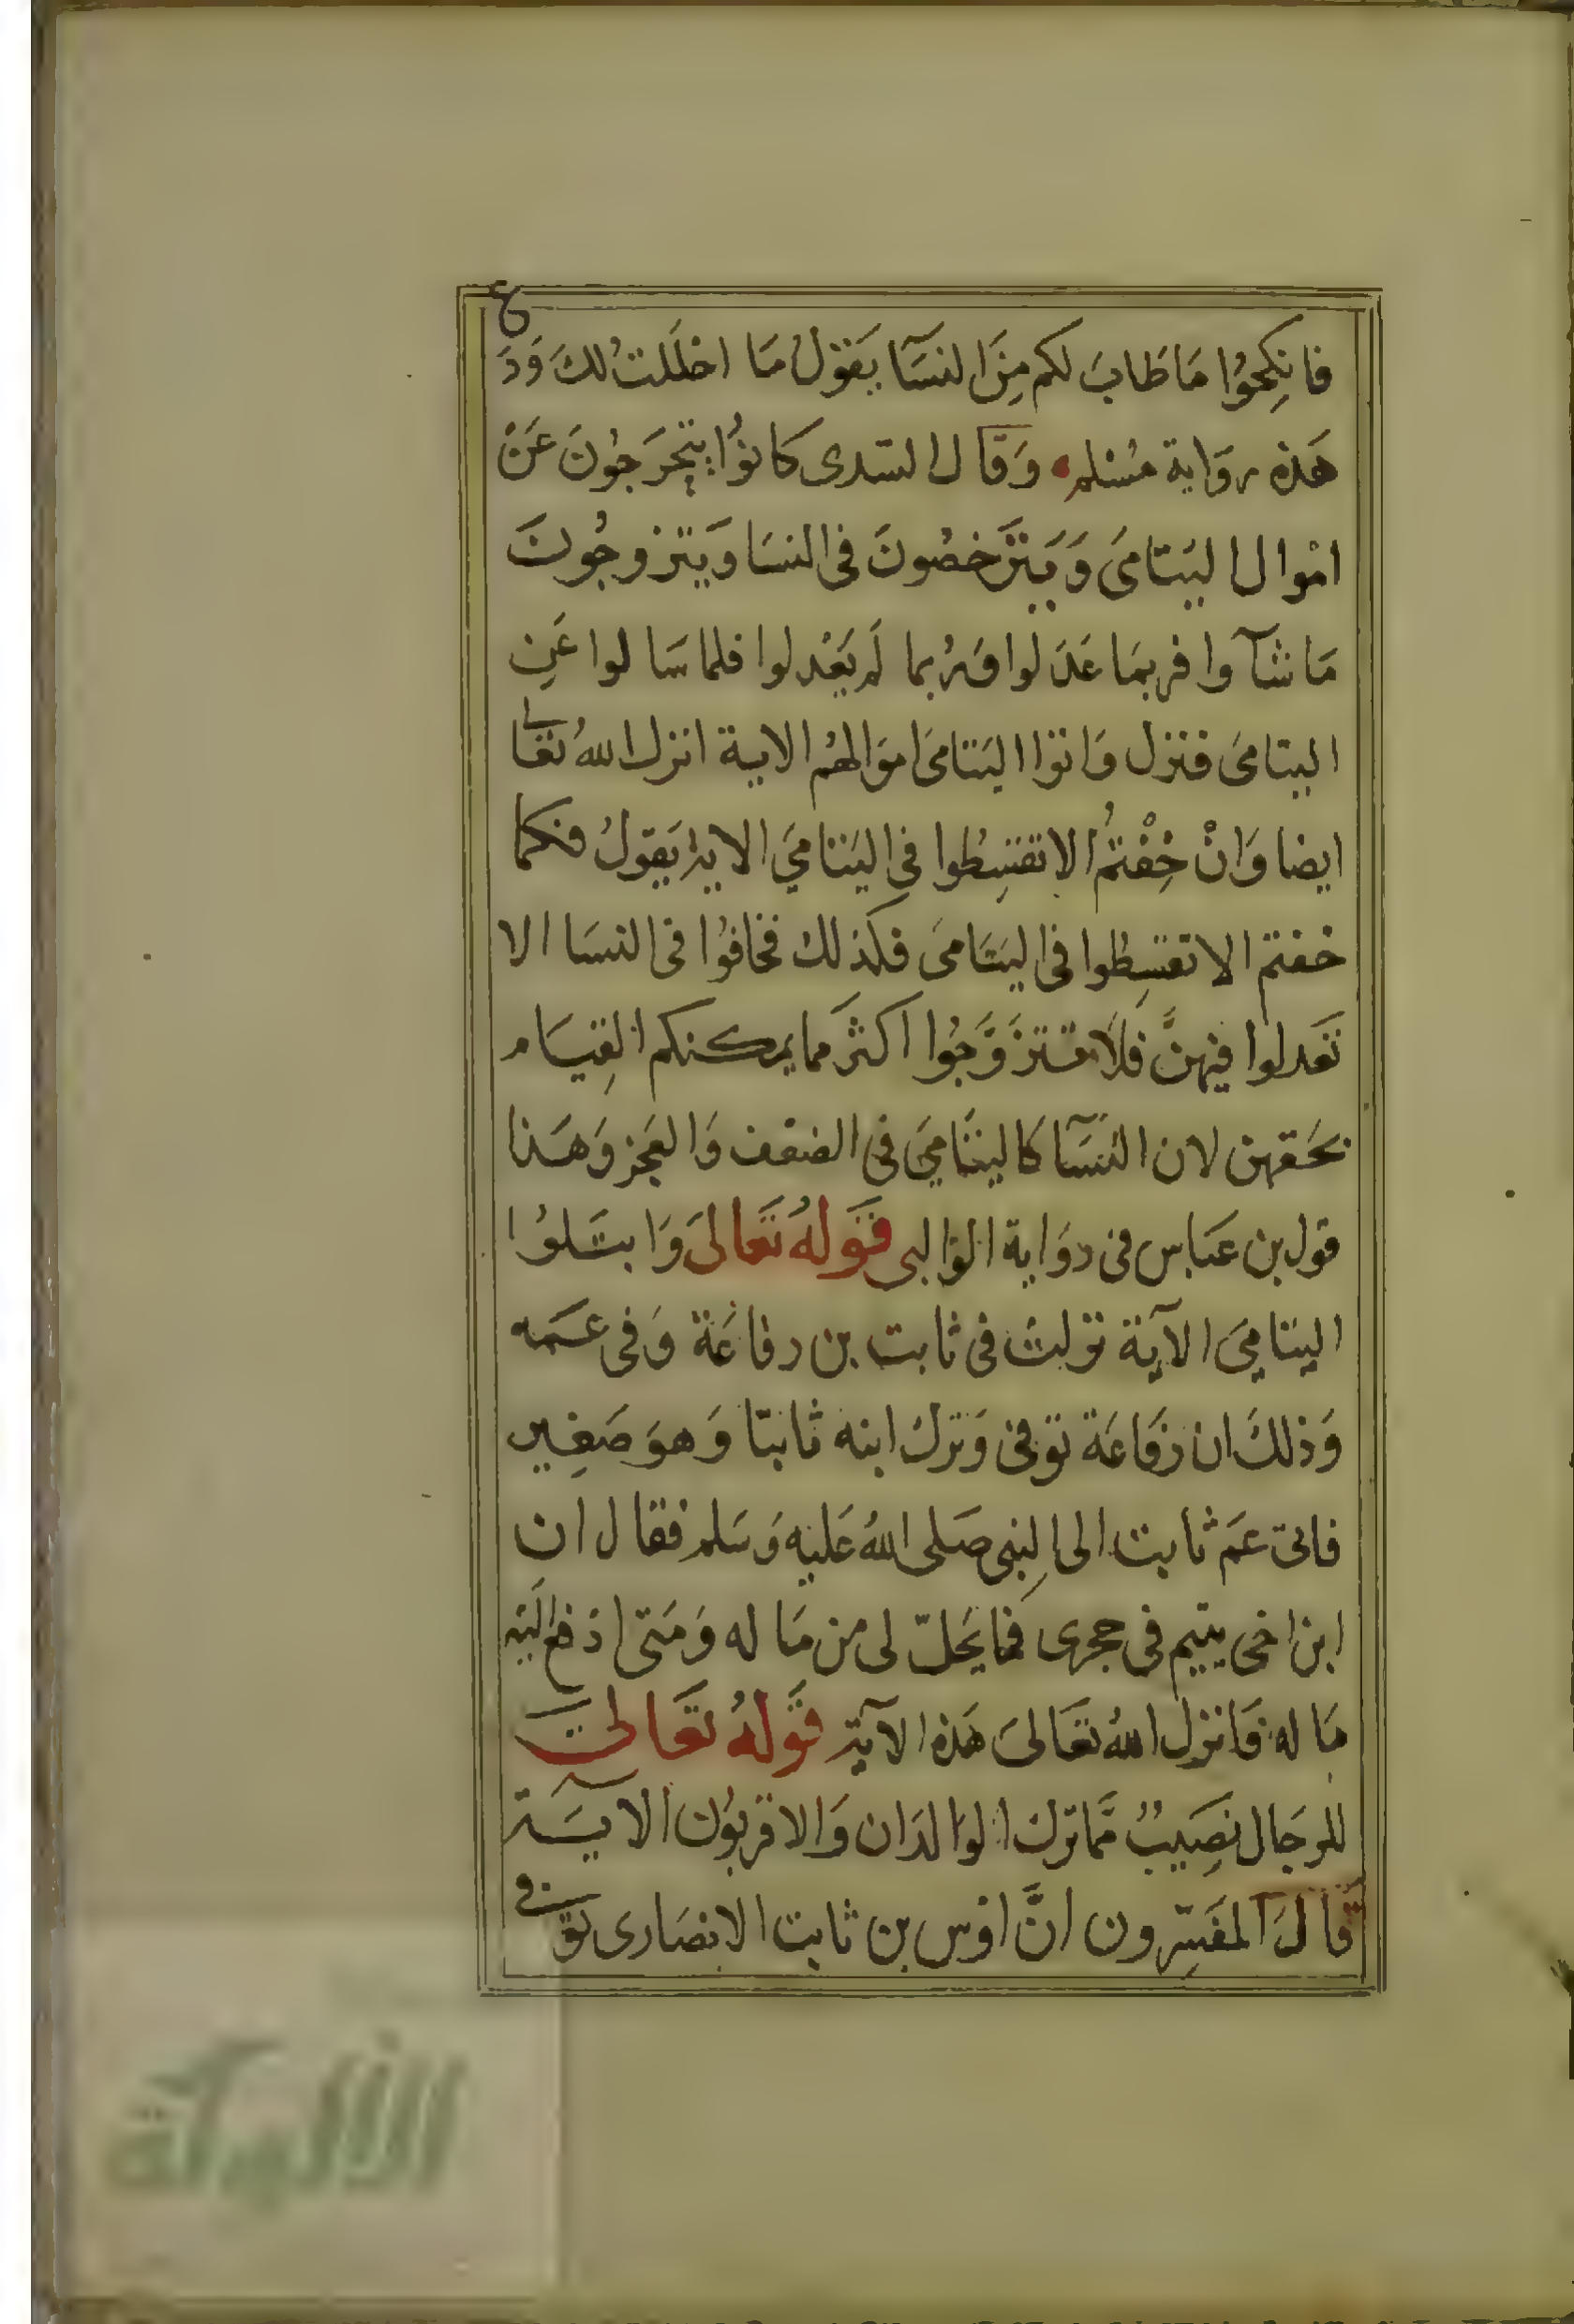 فانكِحُوا مَا طَابَ لكم مِنَ النسَآ يَقوْلُ مَا احْلَلتُ لكَ وَدَع
هَذه روَاية مُسْلم وَقَال السّدى كانوُا يتحَرجُونَ عَنْ
امْوال اليَتامىَ وَيَترَخصُونَ فى النسَا وَيَتزوجُونَ
مَا شآوا فربمَا عَدَلوا وَرُبما لَم يَعْدلوا فلما سَالوا عَنِ
اليتامىَ فنزل وَاتوا اليَتامىَ امَوَالهُم الاية انزل اللهُ تعَالى
ايضا وَانْ خِفْتمُ الا تقسِطوا في اليَتامىَ الاية يَقولُ فكما
خفتم الا تقسِطوا فى اليَتَامىَ فكَذلك فخافوُا فى النسَا الا
تَعدلوا فيهنَّ فَلاَ تتزَوَّجُوا اكثرَ مما يمكنكم القِيَام
بحَقهن لان النسَآ كاليتَامىَ فى الضعف وَالعَجز وَهَذا
قول بن عَبَاس فى روَاية الوالبى قَولهُ تَعالىَ وَابتَلوُا
اليتَامىَ الآية نزلتْ فى ثابت بن رفاعَة وَفى عَمه
وَذلكَ ان رفَاعَة توفى وَترك ابنه ثابتا وَهوَ صَغِير
فاتى عَم ثابت الى النبى صَلى اللهُ عَليه وَسَلم فقال ان
ابن اخى يتيم فى حجرى فما يَحلّ لى من مَاله وَمَتى ادفع اليَه
مَاله فَانزل اللهُ تعَالىَ هَذه الآية قَولهُ تعَالىَ
للرجَال نصَيبٌ مما ترك الوَالدَان وَالاقربوُن الآيَة
قالَ المفَسِّرون انَّ اوْس بن ثابت الانصَارى توفى
الألوكة